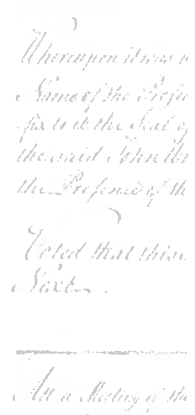 Whereupon it was v
Name of the Presi
fix to it the Seal of
the said John
the Presence of th
Voted that this
Next.
At a Meeting of the